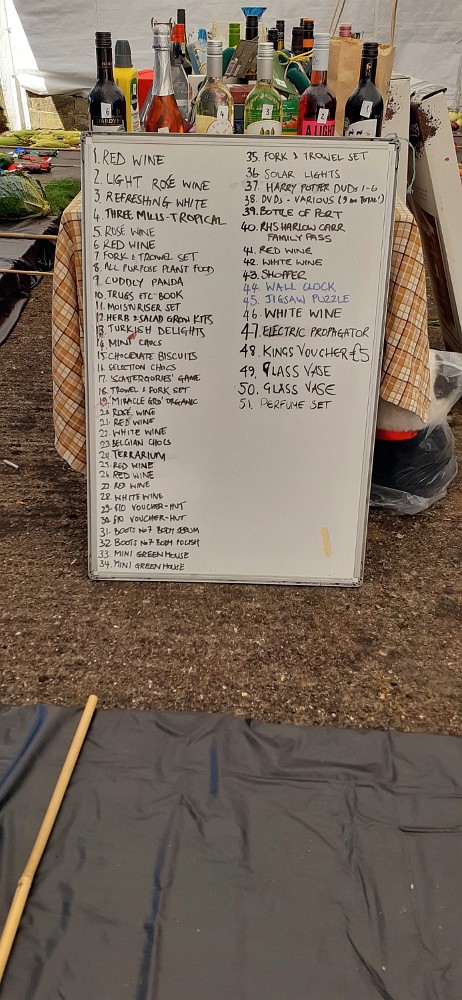 HARDYS
6
4
3
2
A LIGHT
1
1. RED WINE
2. LIGHT ROSÉ WINE
3. REFRESHING WHITE
4. THREE MILLS-TROPICAL
5. ROSÉ WINE
6. RED WINE
7. FORK & TROWEL SET
8. ALL PURPOSE PLANT FOOD
9. CUDDLY PANDA
10. TRUGS ETC BOOK
11. MOISTURISER SET
12. HERB & SALAD GROW KITS
13. TURKISH DELIGHTS
14. MINI CHOCS
15. CHOCOLATE BISCUITS
16. SELECTION CHOCS
17. 'SCATTERGORIES' GAME
18. TROWEL & FORK SET
19. MIRACLE GRO' ORGANIC
20. ROSÉ WINE
21. RED WINE
22. WHITE WINE
23. BELGIAN CHOCS
24. TERRARIUM
25. RED WINE
26. RED WINE
27. RED WINE
28. WHITE WINE
29. £10 VOUCHER-HUT
30. £10 VOUCHER-HUT
31. BOOTS No7 BODY SERUM
32. BOOTS No7 BODY POLISH
33. MINI GREENHOUSE
34. MINI GREENHOUSE
35. FORK & TROWEL SET
36. SOLAR LIGHTS
37. HARRY POTTER DVDS 1-6
38. DVDS - VARIOUS (9 IN TOTAL)
39. BOTTLE OF PORT
40. RHS HARLOW CARR
FAMILY PASS
41. RED WINE
42. WHITE WINE
43. SHOPPER
44. WALL CLOCK
45. JIGSAW PUZZLE
46. WHITE WINE
47. ELECTRIC PROPAGATOR
48. KINGS VOUCHER £5
49. GLASS VASE
50. GLASS VASE
51. PERFUME SET